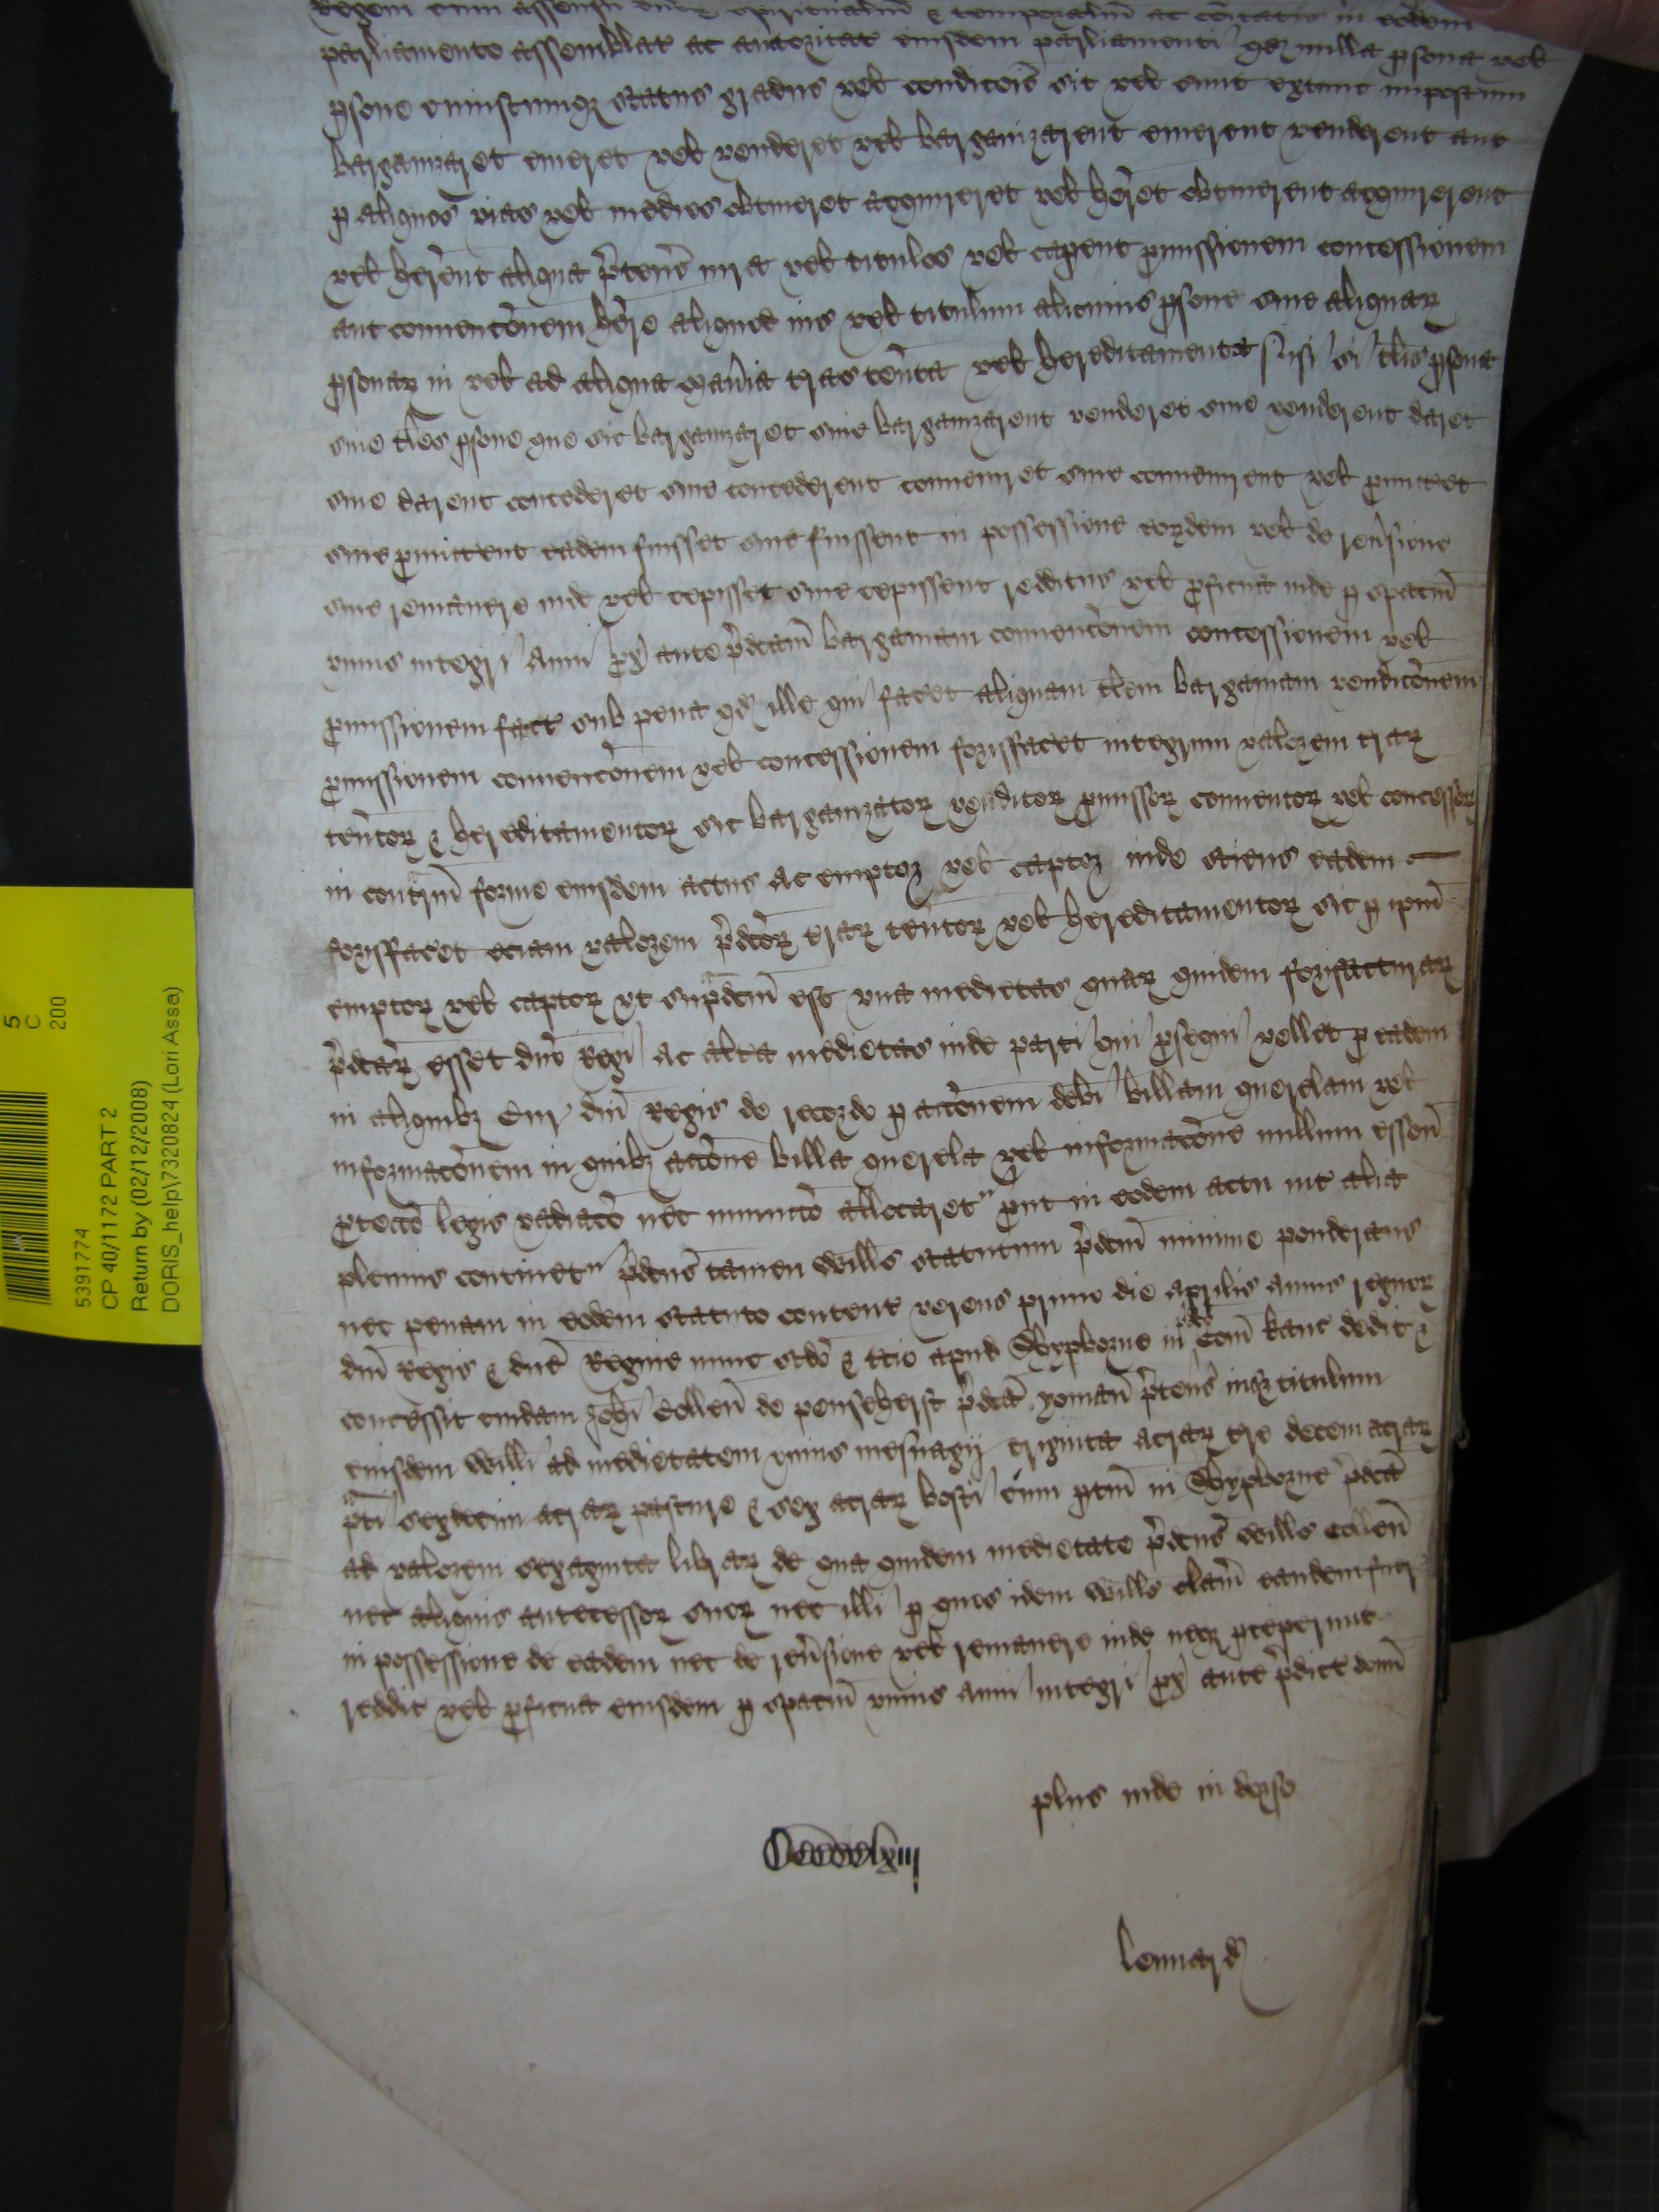 Regem cum assensu dnoꝝ spiritualiu & temporaliu ac coitatis in eodem
parliamento assemblat ac auctoritat eiusdem parliamenti qd nulla psona vel
psone cuiuscumqꝫ status gradus vel condicois sit vel sint extunc imposterum
barganizaret emeret vel venderet vel barganizarent emerent venderent aut
p aliquos vias vel medios obtineret acquireret vel heret obtinerent acquirerent
vel herent aliqua ptens iura vel titulos vel caperent pmissionem concessionem
aut convencoem here aliquod ius vel titulum alicuius psone sive aliquaꝝ
psonaꝝ in vel ad aliqua mania tras tenta vel hereditamenta nisi si tlis psona
sive tles psone que sic barganizaret sive barganizarent venderet sive venderent daret
sive darent concederet sive concederent conveniret sive convenirent vel pmitteret
sive pmitterent eadem fuisset sive fuissent in possessione eoꝝdem vel de revsione
sive remanere inde vel cepisset sive cepissent redditus vel pficua inde p spaciu
unius integri anni px ante pdcam barganiam convencoem concessionem vel
pmissionem fact sub pena qd ille qui faceret aliquam tlem barganiam vendicoem
pmissionem convencoem vel concessionem forisfaceret integrum valorem traꝝ
tentoꝝ & hereditamentoꝝ sic barganizatoꝝ venditoꝝ pmissoꝝ conventoꝝ vel concessoꝝ
in contrariu forme eiusdem actus ac emptor vel captor inde sciens eadem
forisfaceret eciam valorem pdcoꝝ traꝝ tentoꝝ vel hereditamentoꝝ sic p ipm
emptoꝝ vel captoꝝ ut supradcm est una medietas quaꝝ quidem forisfacturaꝝ
pdcaꝝ esset dno Regi ac altera medietas inde parti qui psequi vellet p eadem
in aliquibꝫ Cur dni Regis de recordo p accoem debi billam querelam vel
informacoem in quibꝫ accoe billa querela vel informacoe nullum esson
ptecco legis vadiaco nec iniuncco allocaretr put in eodem actu int alia
plenius continetr pdcus tamen Wills statutum pdcm minime ponderans
nec penam in eodem statuto content verens primo die Aprilis annis regnoꝝ
dni Regis & dne Regine nunc scdo & tcio apud Shyporne in Com Kanc dedit &
concessit cuidam Johi Collen de Pensehurst pdca yoman ptens ius & titulum
eiusdem Willi ad medietatem unius mesuagij triginta acraꝝ tre decem acraꝝ
pti sexdecim acraꝝ pasture & sex acraꝝ bosci cum ptin in Shyporne pdca
ad valorem sexaginta libraꝝ de qua quidem medietate pdcus Wills Collen
nec aliquis antecessoꝝ suoꝝ nec illi p quos idem Wills clam eandem fuer
in possessione de eadem nec de revsione vel remanere inde neqꝫ pceperunt
reddit vel pficua eiusdem p spaciu unius anni integri px ante pdict donu
plus inde in dorso
Lennard
5
C
200
5391774
CP 40/1172 PART 2
Return by (02/12/2008)
DORIS_help\7320824 (Lori Assa)